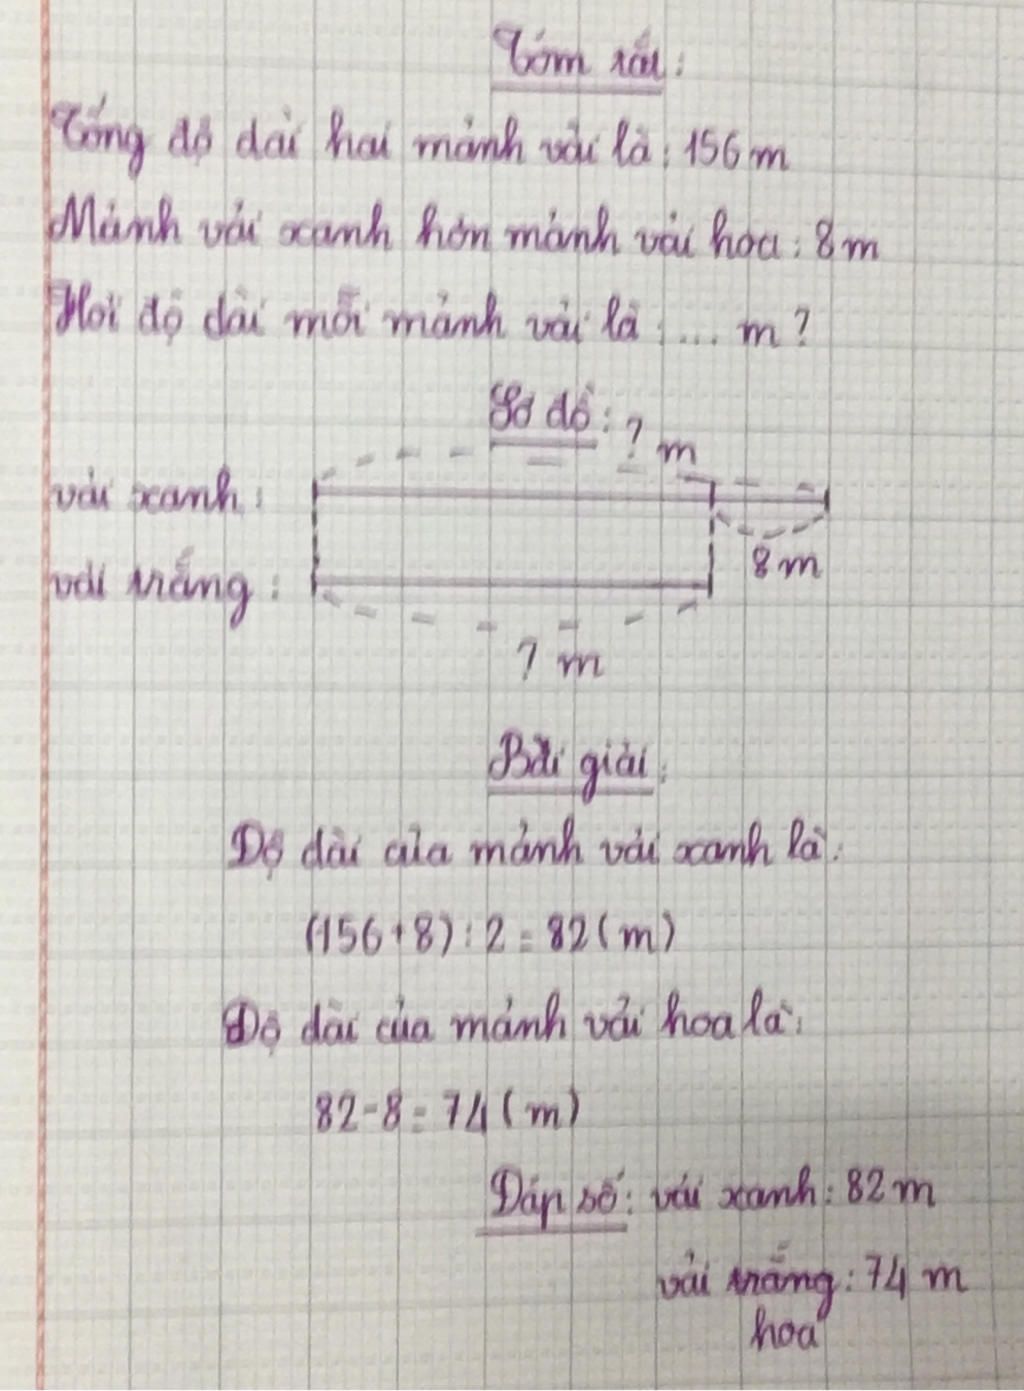 Tóm tắt:
Tổng độ dài hai mảnh vải là: 156 m
Mảnh vải xanh hơn mảnh vải hoa: 8 m
Hỏi độ dài mỗi mảnh vải là: ... m?
Sơ đồ:
? m
vải xanh:
8 m
vải trắng:
? m
Bài giải:
Độ dài của mảnh vải xanh là:
(156 + 8) : 2 = 82 (m)
Độ dài của mảnh vải hoa là:
82 - 8 = 74 (m)
Đáp số: vải xanh: 82 m
vải trắng: 74 m
hoa